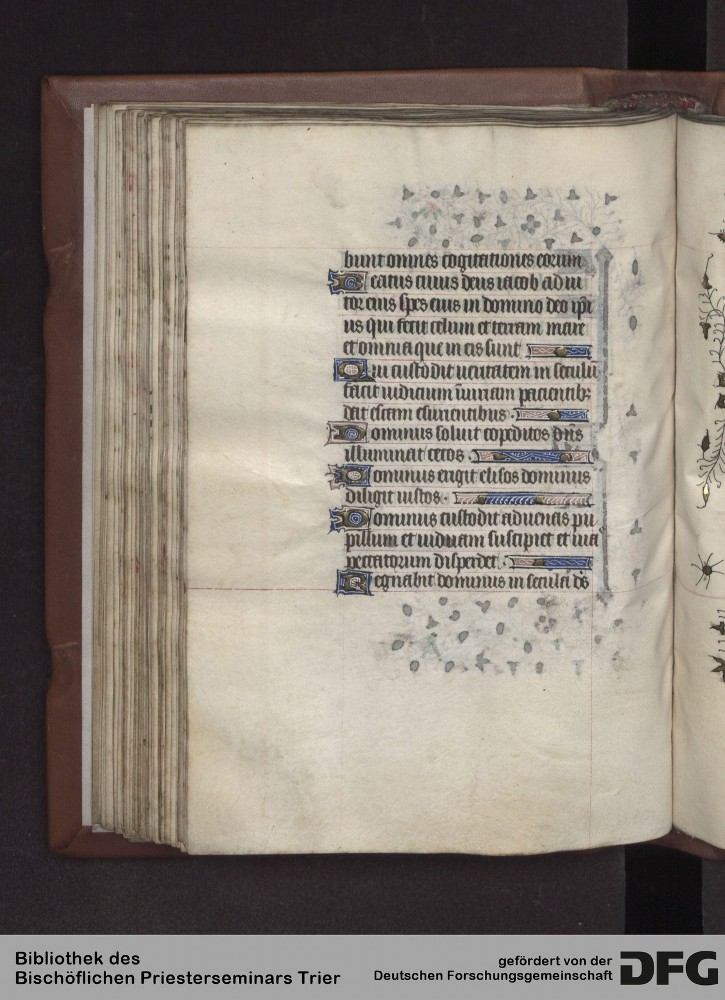 bunt omnes cogitationes eorum
Beatus cuius deus iacob adiu
tor eius spes eius in domino deo ipi
us qui fecit celum et terram mare
et omnia que in eis sunt
Qui custodit ueritatem in seculū
facit iudicium iniuriam pacientibꝫ
dat escam esurientibus.
Dominus soluit copeditos dn̄s
illuminat cecos.
Dominus erigit elisos dominus
diligit iustos.
Dominus custodit aduenas pu
pillum et uiduam suscipiet et uia
peccatorum disperdet.
Regnabit dominus in secula ds̄
Bibliothek des
Bischöflichen Priesterseminars Trier
gefördert von der
Deutschen Forschungsgemeinschaft
DFG